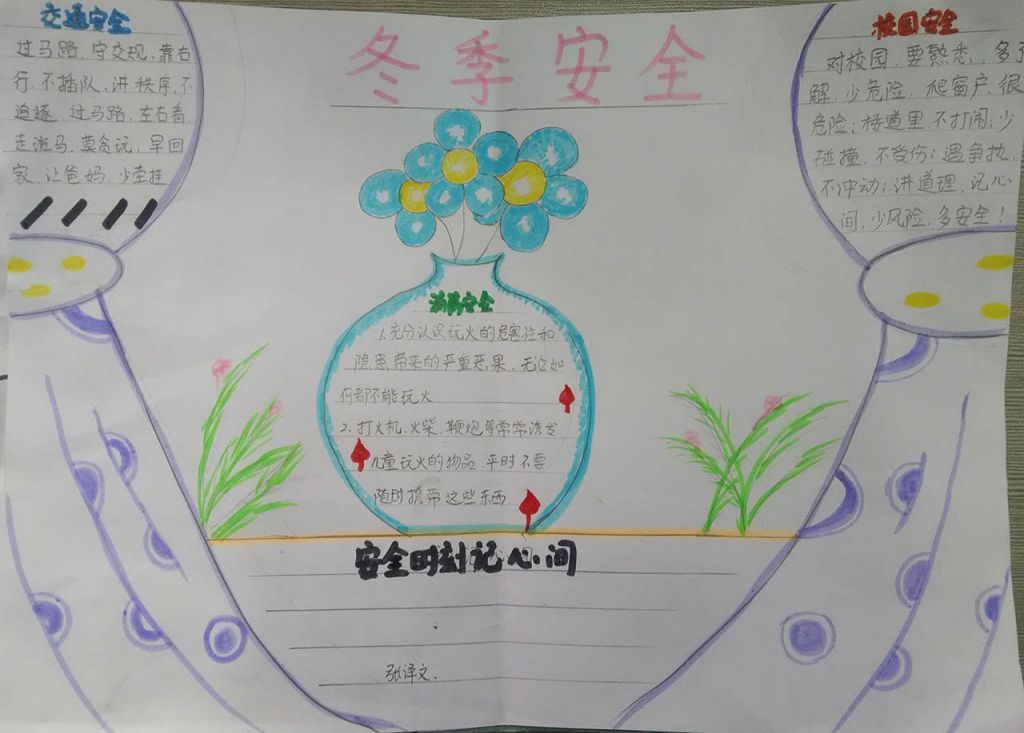 冬季安全
交通安全
过马路、守交规、靠右
行、不插队、讲秩序、不
追逐、过马路、左右看
走斑马、莫贪玩、早回
家、让爸妈、少牵挂
校园安全
对校园、要熟悉、多了
解、少危险、爬窗户、很
危险；楼道里、不打闹；少
碰撞、不受伤；遇争执、
不冲动；讲道理、记心
间、少风险、多安全！
消防安全
1.充分认识玩火的危害性和
隐患带来的严重恶果，无论如
何都不能玩火
2.打火机、火柴、鞭炮等常常诱发
儿童玩火的物品 平时不要
随时携带这些东西
安全时刻记心间
张译文.